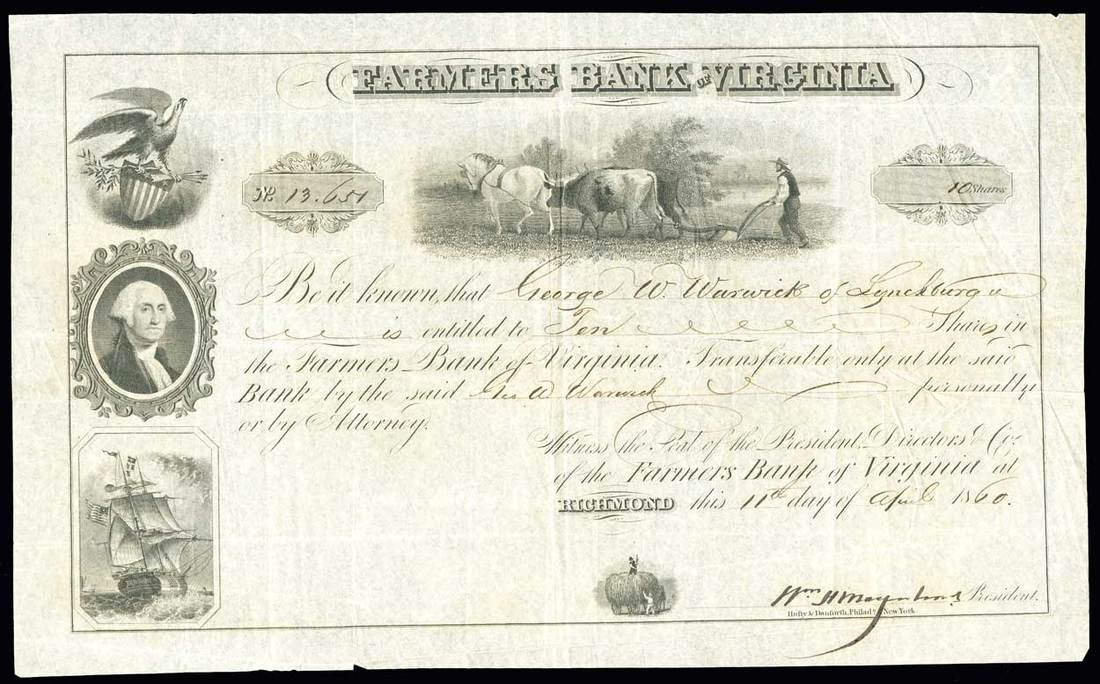 FARMERS BANK OF VIRGINIA
No. 13.651
10 Shares
Be it known, that George W. Warwick of Lynchburg
is entitled to Ten Shares in
the Farmers Bank of Virginia. Transferable only at the said
Bank by the said Geo W Warwick personally
or by Attorney.
Witness the Seal of the President, Directors & Co.
of the Farmers Bank of Virginia at
RICHMOND this 11th day of April 1860.
Wm H President.
Hufty & Danforth, Philada. & New York